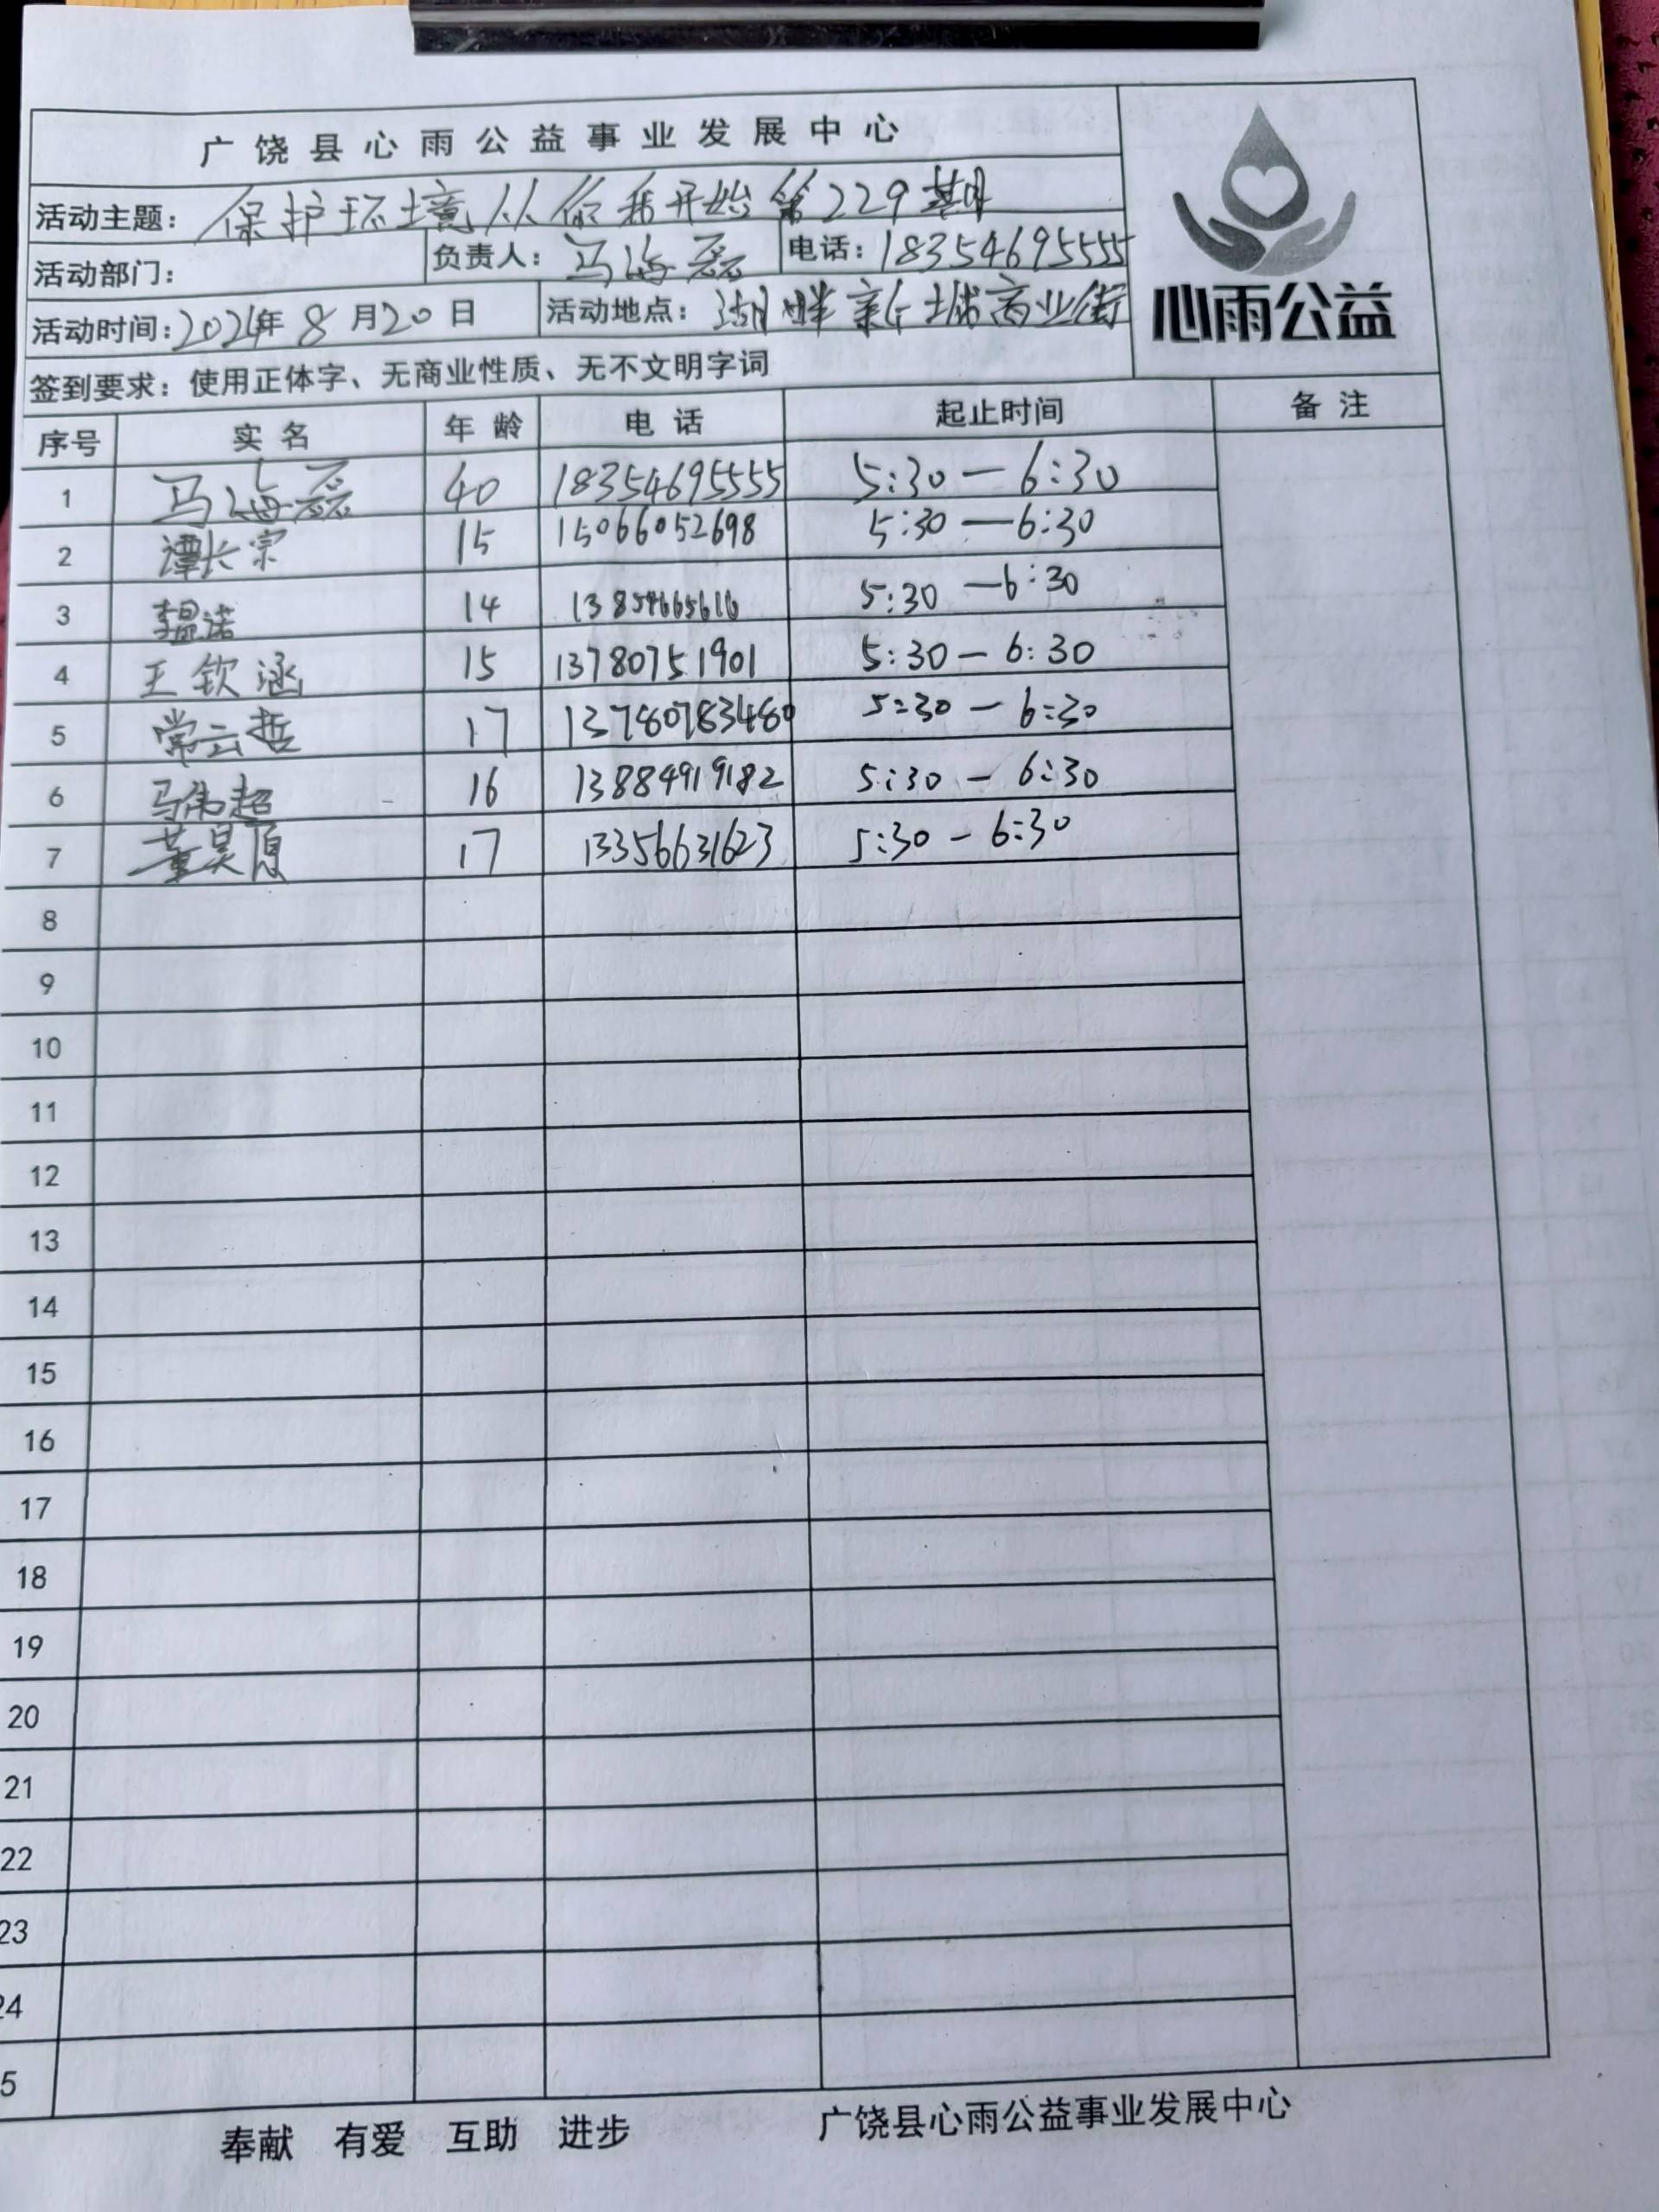 广饶县心雨公益事业发展中心
活动主题：保护环境从你我开始第229期
活动部门： 负责人：马海磊 电话：18354695555
活动时间：2024年8月20日 活动地点：湖畔新城商业街
心雨公益
签到要求：使用正体字、无商业性质、无不文明字词
序号 实名 年龄 电话 起止时间 备注
1 马海磊 40 18354695555 5:30—6:30
2 谭长宗 15 15066052698 5:30—6:30
3 李昱诺 14 13854665616 5:30—6:30
4 王钦涵 15 13780751901 5:30—6:30
5 常云哲 17 13780783480 5:30—6:30
6 马伟超 16 13884919182 5:30—6:30
7 董昊 17 13356631623 5:30—6:30
8
9
10
11
12
13
14
15
16
17
18
19
20
21
22
23
24
5
奉献 有爱 互助 进步 广饶县心雨公益事业发展中心